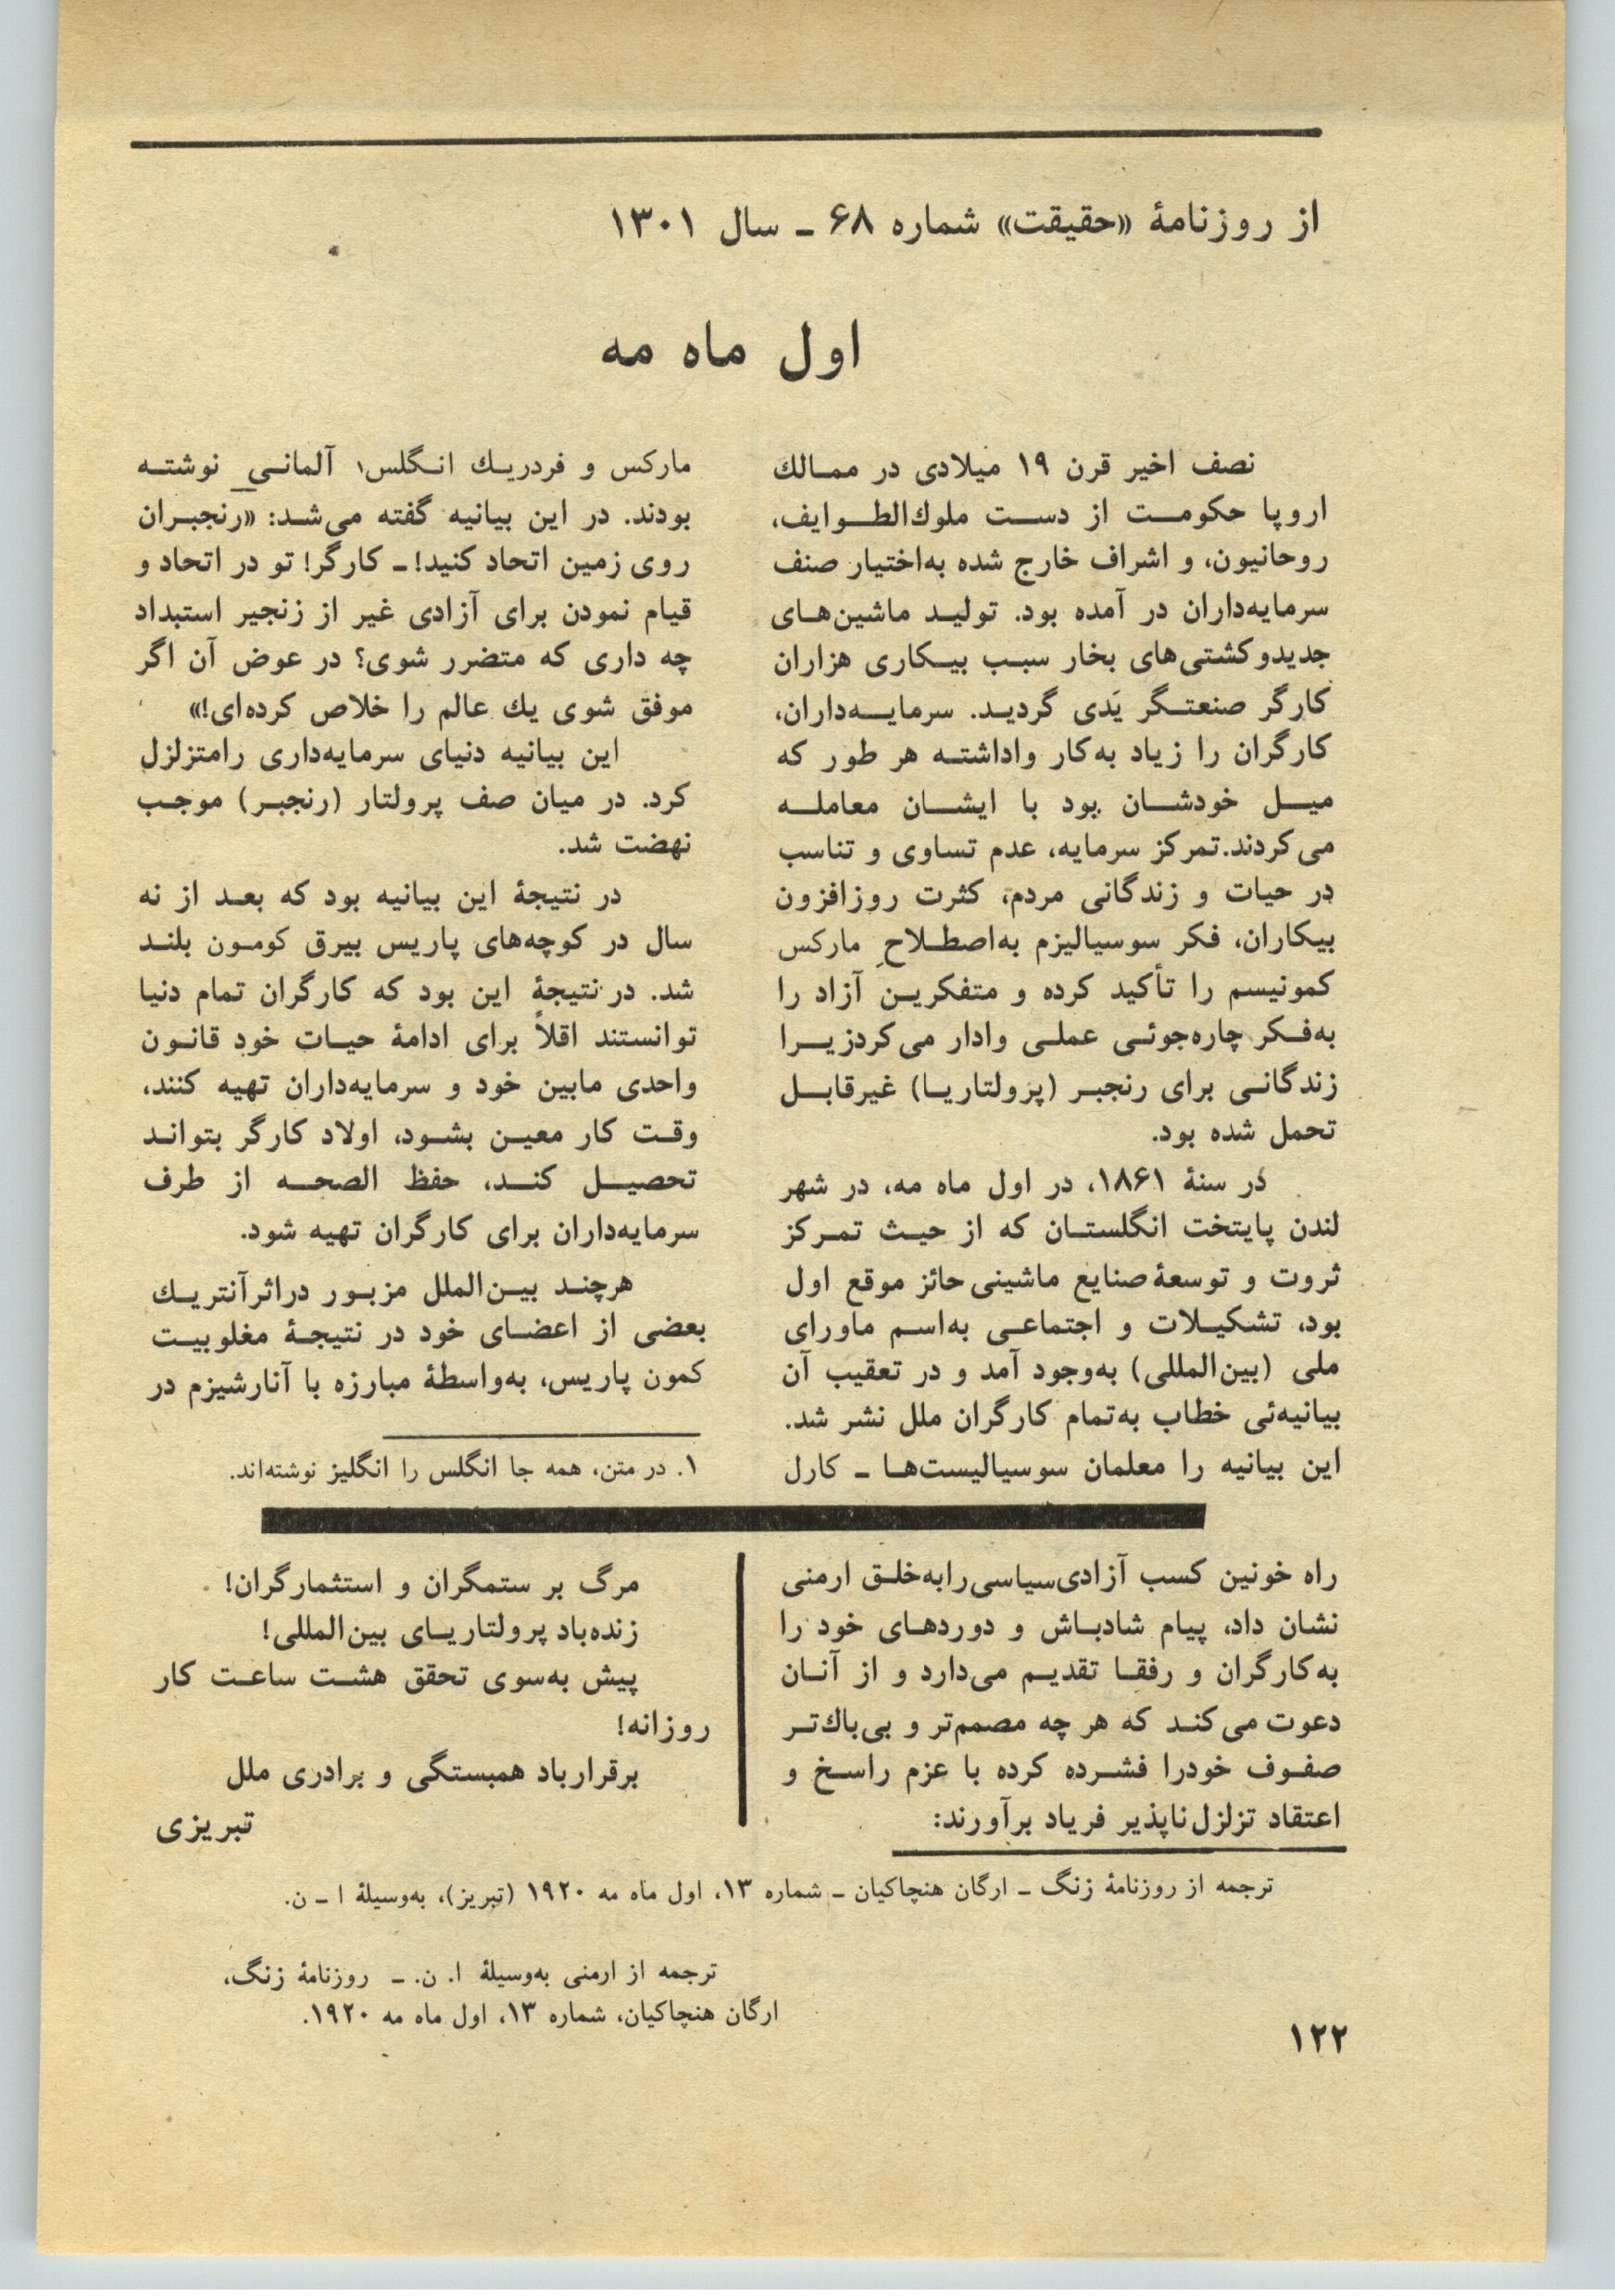 از روزنامهٔ «حقیقت» شماره ۶۸ ـ سال ۱۳۰۱
اول ماه مه
نصف اخیر قرن ۱۹ میلادی در ممالك
اروپا حکومت از دست ملوك‌الطوایف،
روحانیون، و اشراف خارج شده به‌اختیار صنف
سرمایه‌داران در آمده بود. تولید ماشین‌های
جدیدوکشتی‌های بخار سبب بیکاری هزاران
کارگر صنعتگر یَدی گردید. سرمایه‌داران،
کارگران را زیاد به‌کار واداشته هر طور که
میل خودشان بود با ایشان معامله
می‌کردند. تمرکز سرمایه، عدم تساوی و تناسب
در حیات و زندگانی مردم، کثرت روزافزون
بیکاران، فکر سوسیالیزم به‌اصطلاحِ مارکس
کمونیسم را تأکید کرده و متفکرین آزاد را
به‌فکر چاره‌جوئی عملی وادار می‌کردزیرا
زندگانی برای رنجبر (پرولتاریا) غیرقابل
تحمل شده بود.
در سنهٔ ۱۸۶۱، در اول ماه مه، در شهر
لندن پایتخت انگلستان که از حیث تمرکز
ثروت و توسعهٔ صنایع ماشینی حائز موقع اول
بود، تشکیلات و اجتماعی به‌اسم ماورای
ملی (بین‌المللی) به‌وجود آمد و در تعقیب آن
بیانیه‌ئی خطاب به‌تمام کارگران ملل نشر شد.
این بیانیه را معلمان سوسیالیست‌ها ـ کارل
مارکس و فردریك انگلس۱ آلمانی_ نوشته
بودند. در این بیانیه گفته می‌شد: «رنجبران
روی زمین اتحاد کنید! ـ کارگر! تو در اتحاد و
قیام نمودن برای آزادی غیر از زنجیر استبداد
چه داری که متضرر شوی؟ در عوض آن اگر
موفق شوی یك عالم را خلاص کرده‌ای!»
این بیانیه دنیای سرمایه‌داری رامتزلزل
کرد. در میان صف پرولتار (رنجبر) موجب
نهضت شد.
در نتیجهٔ این بیانیه بود که بعد از نه
سال در کوچه‌های پاریس بیرق کومون بلند
شد. در نتیجهٔ این بود که کارگران تمام دنیا
توانستند اقلاً برای ادامهٔ حیات خود قانون
واحدی مابین خود و سرمایه‌داران تهیه کنند،
وقت کار معین بشود، اولاد کارگر بتواند
تحصیل کند، حفظ الصحه از طرف
سرمایه‌داران برای کارگران تهیه شود.
هرچند بین‌الملل مزبور دراثرآنتریك
بعضی از اعضای خود در نتیجهٔ مغلوبیت
کمون پاریس، به‌واسطهٔ مبارزه با آنارشیزم در
۱. در متن، همه جا انگلس را انگلیز نوشته‌اند.
راه خونین کسب آزادی‌سیاسی‌رابه‌خلق ارمنی
نشان داد، پیام شادباش و دوردهای خود را
به‌کارگران و رفقا تقدیم می‌دارد و از آنان
دعوت می‌کند که هر چه مصمم‌تر و بی‌باك‌تر
صفوف خودرا فشرده کرده با عزم راسخ و
اعتقاد تزلزل‌ناپذیر فریاد برآورند:
مرگ بر ستمگران و استثمارگران!
زنده‌باد پرولتاریای بین‌المللی!
پیش به‌سوی تحقق هشت ساعت کار
روزانه!
برقرارباد همبستگی و برادری ملل
تبریزی
ترجمه از روزنامهٔ زنگ ـ ارگان هنچاکیان ـ شماره ۱۳، اول ماه مه ۱۹۲۰ (تبریز)، به‌وسیلهٔ ا ـ ن.
ترجمه از ارمنی به‌وسیلهٔ ا. ن. ـ روزنامهٔ زنگ،
ارگان هنچاکیان، شماره ۱۳، اول ماه مه ۱۹۲۰.
۱۲۲